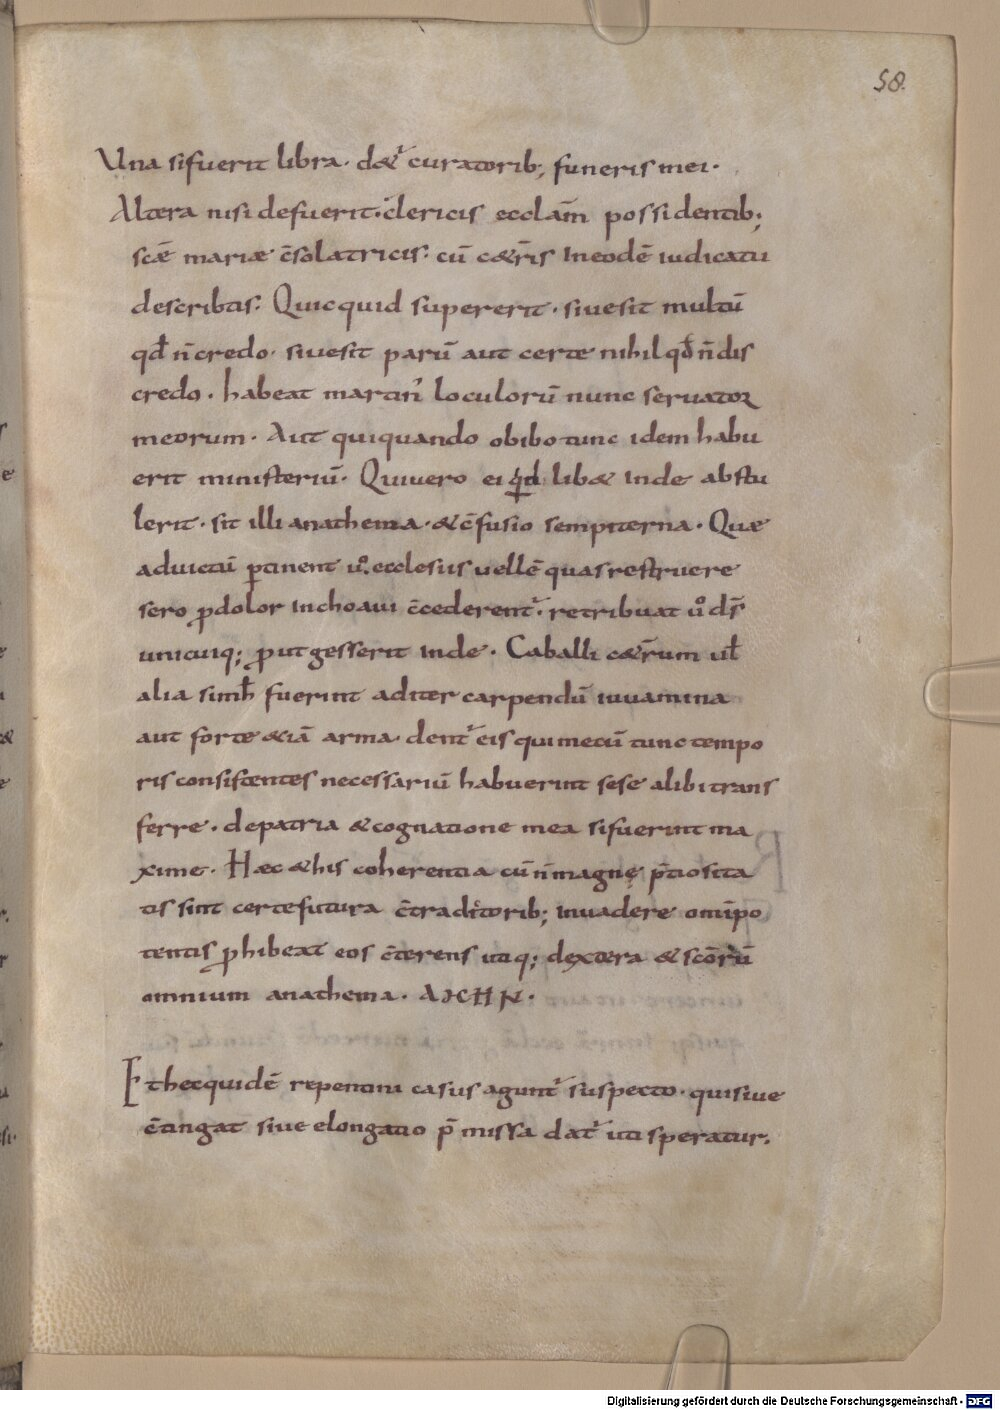 58.
Una si fuerit libra. d&ˀ curatorib; funeris mei.
Altera nisi defuerit. clericis ecclām possidentib;
scē mariæ c̄solatricis. cū c&r̄is In eodē iudicatu
describtis. Quicquid supererit. siue sit multū
qđ n̄ credo. siue sit parū aut certe nihil qđ n̄ dis
credo. habeat martin̄ loculorū nunc seruator
meorum. Aut qui quando obibo tunc idem habu
erit ministeriū. Qui uero ei qđ lib& Inde abstu
lerit. sit illi anathema. & c̄fusio sempiterna. Quæ
ad uictū ꝑtinent uº. ecclesiis uellē quas restruere
sero ꝓdolor Inchoaui c̄cederentˀ. retribuat uº d̄s
unicuiq; ꝓut gesserit Inde. Caballi c&r̄um ul̄
alia simł fuerint ad iter carpendū iuuamina
aut forte &iā arma. dentˀ eis qui mecū tunc tempo
ris consistentes necessariū habuerint sese alibi trans
ferre. de patria & cognatione mea si fuerint ma
xime. Hæc & his coherentia cū n̄ magnę p̄tiosita
tis sint certe futura c̄traditorib; Inuadere omīpo
tentis ꝓhibeat eos c̄terens utiq; dextera & scōrū
omnium anathema. AMHN.
Et hec quidē repentini casus aguntˀ suspecto. qui siue
c̄tingat siue elongatio p̄missa datˀ uti speratur.
Digitalisierung gefördert durch die Deutsche Forschungsgemeinschaft - DFG